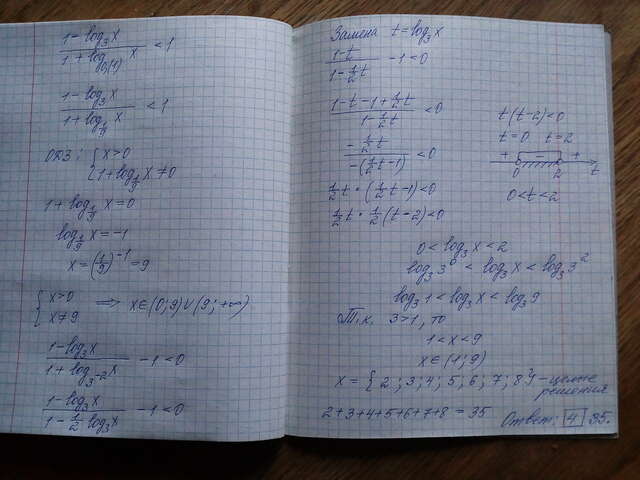 (1 - log₃x)/(1 + log₀,₍₁₎ x) < 1
(1 - log₃x)/(1 + log_{1/9} x) < 1
ОДЗ: { x > 0
{ 1 + log_{1/9} x ≠ 0
1 + log_{1/9} x = 0
log_{1/9} x = -1
x = (1/9)⁻¹ = 9
{ x > 0
{ x ≠ 9 ⟹ x ∈ (0; 9) ∪ (9; +∞)
(1 - log₃x)/(1 + log_{3⁻²} x) - 1 < 0
(1 - log₃x)/(1 - 1/2 log₃x) - 1 < 0
Замена t = log₃x
(1 - t)/(1 - 1/2 t) - 1 < 0
(1 - t - 1 + 1/2 t)/(1 - 1/2 t) < 0
(- 1/2 t)/(-(1/2 t - 1)) < 0
1/2 t · (1/2 t - 1) < 0
1/2 t · 1/2 (t - 2) < 0
t(t - 2) < 0
t = 0 t = 2
+ - +
0 2 t
0 < t < 2
0 < log₃x < 2
log₃3⁰ < log₃x < log₃3²
log₃1 < log₃x < log₃9
Т.к. 3 > 1, то
1 < x < 9
x ∈ (1; 9)
x = {2; 3; 4; 5; 6; 7; 8} - целые
решения
2 + 3 + 4 + 5 + 6 + 7 + 8 = 35
Ответ: [4] 35.